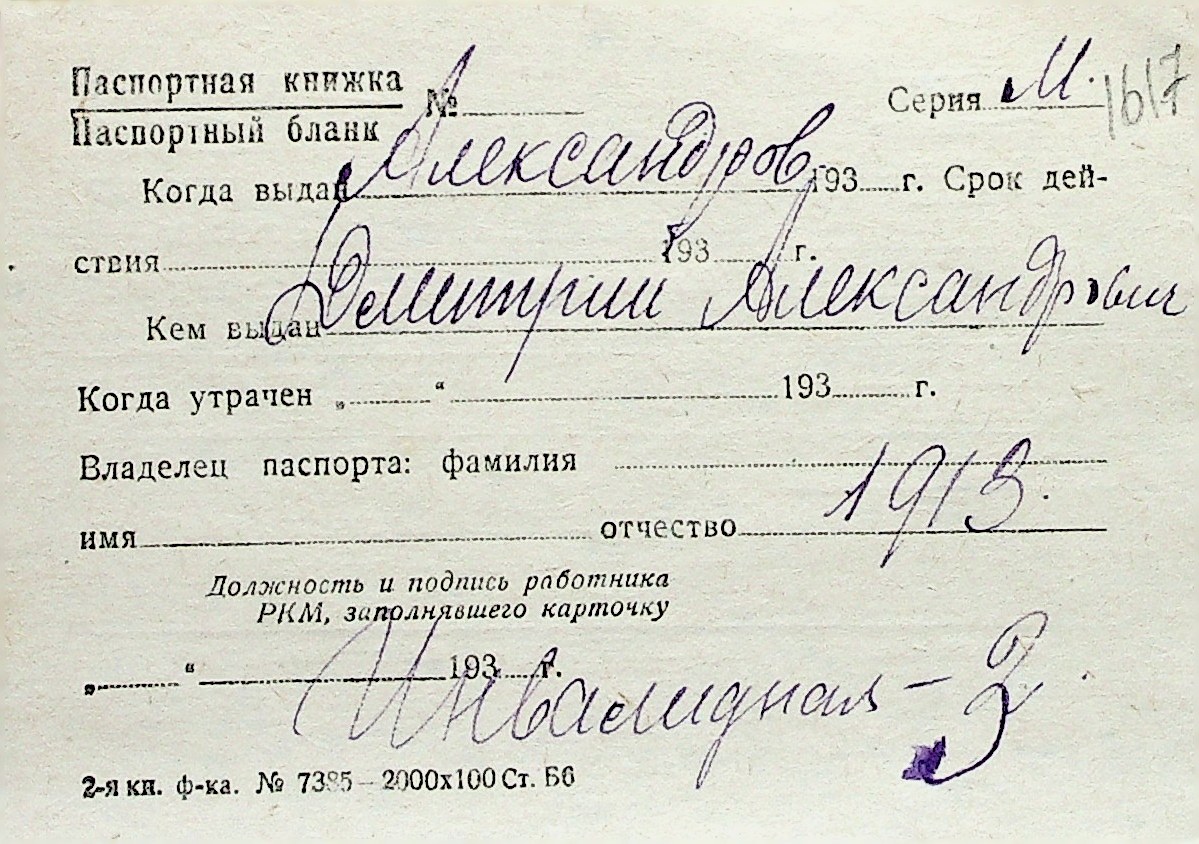 Паспортная книжка № Серия М. 1617
Паспортный бланк
Александров
Когда выдан 193 г. Срок дей-
ствия 193 г.
Дмитрий Александрович
Кем выдан
Когда утрачен „ “ 193 г.
Владелец паспорта: фамилия
1913.
имя отчество
Должность и подпись работника
РКМ, заполнявшего карточку
„ “ 193 г.
Инвалидная - 3.
2-я кн. ф-ка. № 7385 – 2000х100 Ст. Бб